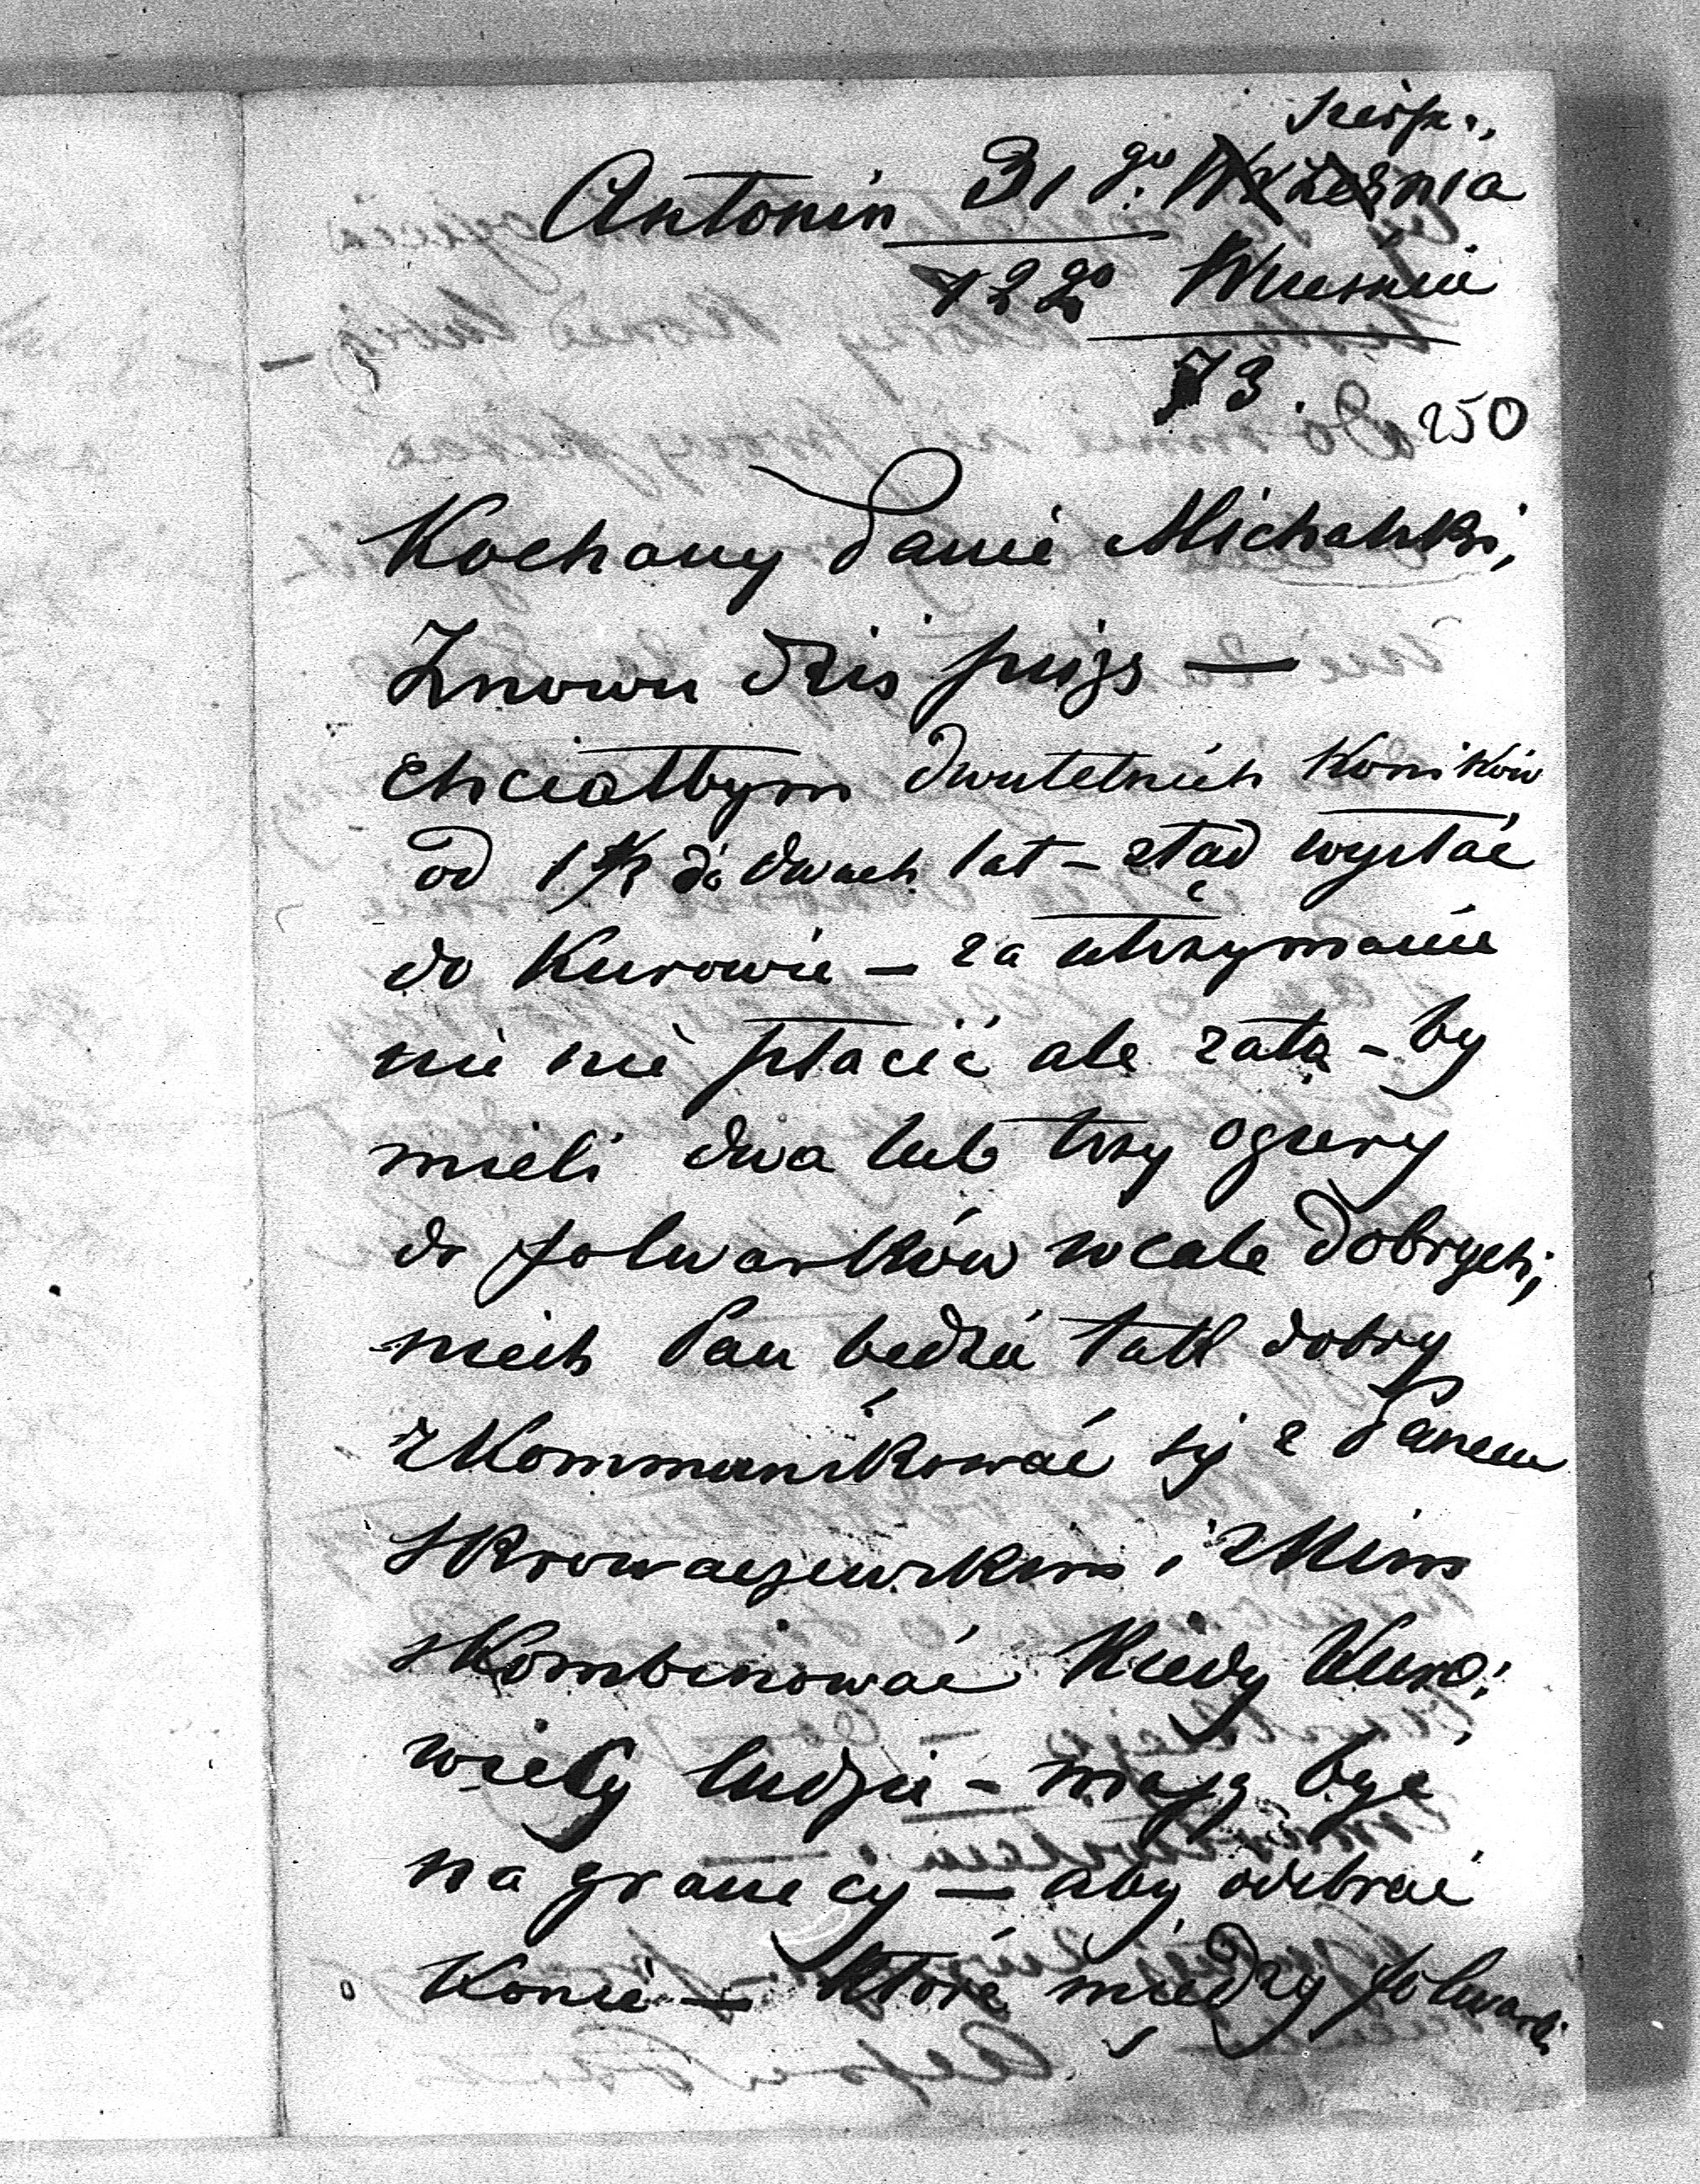 Sierp.
Antonin 31go Września
12go Września
73.
250
Kochany Panie Michalski,
Znowu dziś piszę —
Chciałbym dwuletnich koników
od 1½ do dwóch lat – ztąd wysłać
do Kurowie – za utrzymanie
nie nie płacić ale zatą – by
mieli dwa lub trzy ogiery
do folwarków wcale dobrych,
niech Pan będzie tak dobry
zkommunikować się z Panem
Skrowaczewskim i z Nim
skombinować kiedy Kuro:
wiecy ludzie – mają być
na granicy — aby odebrać
Konie — które między folwarki